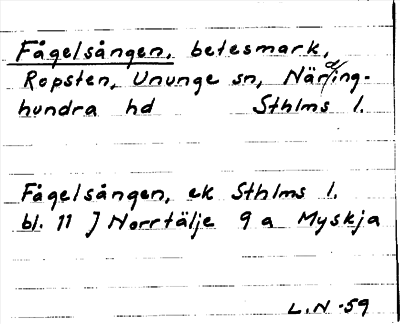 Fågelsången, betesmark,
Ropsten, Ununge sn, Närding-
hundra hd Sthlms l.
Fågelsången, ek Sthlms l.
bl. 11 J Norrtälje 9 a Myskja
L.N -59